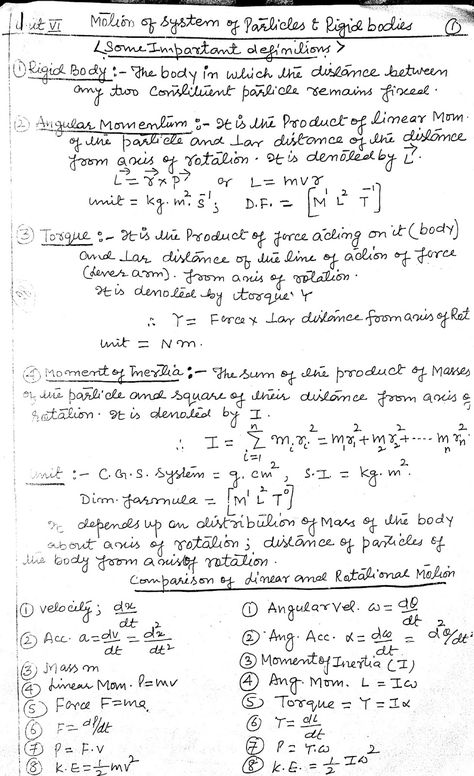 Unit VI Motion of System of Particles & Rigid bodies ①
< Some Important definitions >
① Rigid Body :- The body in which the distance between
any two constituent particle remains fixed.
② Angular Momentum :- It is the Product of linear Mom.
of the particle and Lar distance of the distance
from axis of rotation. It is denoted by L⃗.
L⃗ = r⃗ × p⃗ or L = mvr
unit = kg. m². s⁻¹; D.F. = [M¹ L² T⁻¹]
③ Torque :- It is the Product of force acting on it (body)
and Lar distance of the line of action of force
(Lever arm). from axis of rotation.
It is denoted by torque τ
∴ τ = Force × Lar distance from axis of Rot
unit = Nm.
④ Moment of Inertia :- The sum of the product of Masses
of the particle and square of their distance from axis of
rotation. It is denoted by I.
∴ I = Σ(i=1 to n) mᵢrᵢ² = m₁r₁² + m₂r₂² + ---- mₙrₙ²
Unit :- C.G.S. System = g. cm², S.I = kg. m².
Dim. formula = [M¹ L² T⁰]
It depends up on distribution of Mass of the body
about axis of rotation; distance of particles of
the body from axis of rotation.
Comparison of Linear and Rotational Motion
① velocity; dx/dt ① Angular Vel. ω = dθ/dt
② Acc. a = dv/dt = d²x/dt² ② Ang. Acc. α = dω/dt = d²θ/dt²
③ Mass m ③ Moment of Inertia (I)
④ Linear Mom. P=mv ④ Ang. Mom. L = Iω
⑤ Force F=ma ⑤ Torque = τ = Iα
⑥ F = dP/dt ⑥ τ = dL/dt
⑦ P = F.v ⑦ P = τ.ω
⑧ K.E = ½ mv² ⑧ K.E. = ½ Iω²